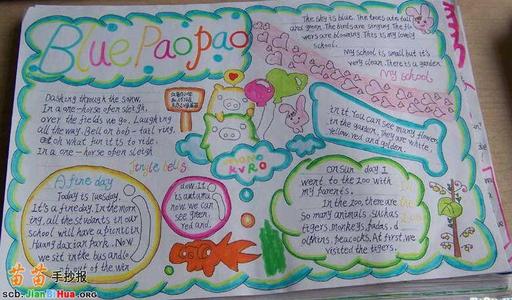 Blue Paopao
The sky is blue. The trees are tall
and green. The birds are singing. The flo
wers are blowing. This is my lovely
school.
My school is small but it's
very clean. There is a garden
My school
in it. You can see many flowers
in the garden, They are white,
Yellow, red and golden.
Dashing through the snow,
In a one-horse open sleigh,
over the fields we go, Laughing
all the way. Bell on bob-tail ring,
oh what fun it is to ride
In a one-horse open sleigh
Jingle bells
MONO
KURO
A fine day
Today is Tuesday.
It's a fine day. In the mor
ing, all the students in our
school will have a picnic in
Huang daxian Park. Now
we sit in the bus and
of the win
dow. It
is autumn
now. we can
see green,
red and.
On Sun-day I
went to the zoo with
my parents.
In the zoo, there are
So many animals, such as
tigers, monkeys, pandas, d
olphins, peacocks. At first, we
visited the tigers.
苗苗手抄报
scb.JianBiHua.ORG